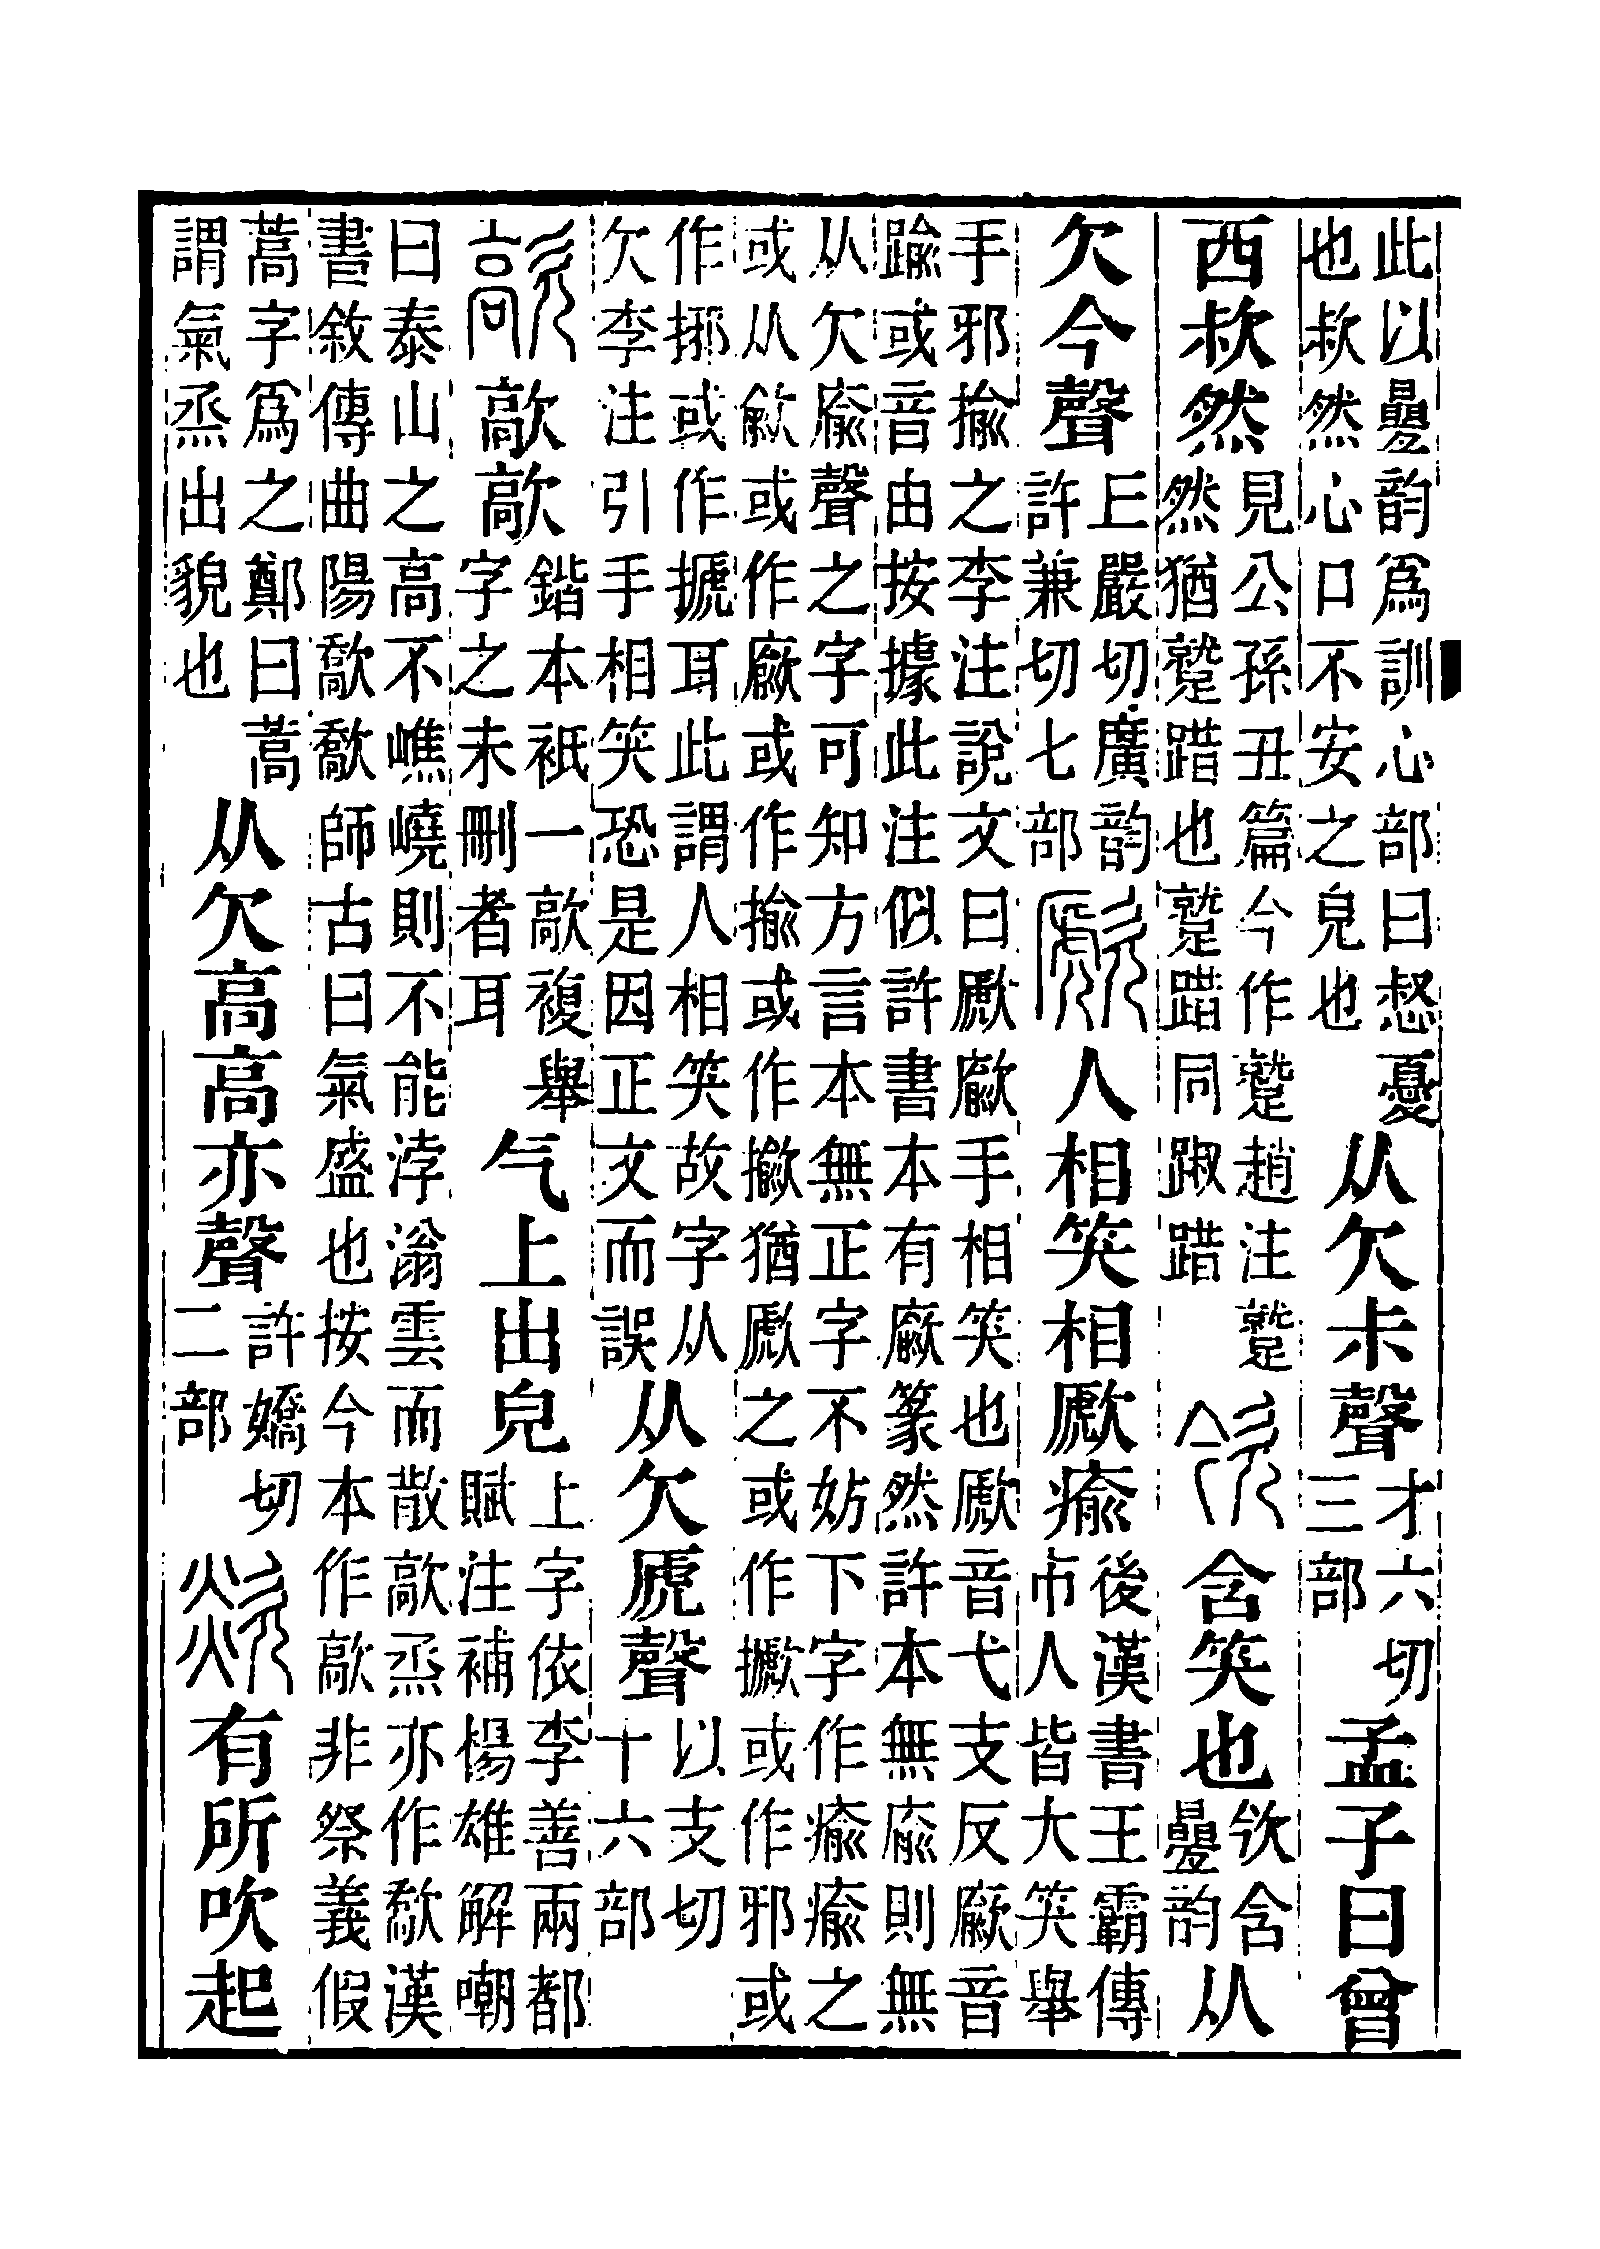 此以疊韵爲訓心部曰惄憂也㰗然心口不安之皃也从欠尗聲才六切三部孟子曰曾
西㰗然見公孫丑篇今作蹵趙注蹵然猶蹵踖也蹵踖同踧踖欦含笑也欦含疊韵从
欠今聲丄嚴切廣韵許兼切七部歋人相笑相歋瘉後漢書王霸傳市人皆大笑舉
手邪揄之李注說文曰歋手相笑也歋音弋支反音踰或音由按據此注似許書本有篆然許本無則無
从欠聲之字可知方言本無正字不妨下字作瘉瘉之或从或作或作揄或作猶歋之或作或作邪或
作捓或作搋耳此謂人相笑故字从欠李注引手相笑恐是因正文而誤从欠虒聲以支切十六部
歊歊歊鍇本衹一歊複舉字之未刪者耳气上出皃上字依李善兩都賦注補楊雄解嘲
曰泰山之高不嶕嶢則不能浡滃雲而散歊烝亦作歊漢書敘傳曲陽歊歊師古曰氣盛也按今本作歊非祭義假
蒿字爲之鄭曰蒿謂氣烝出貌也从欠高高亦聲許嬌切二部欻有所吹起